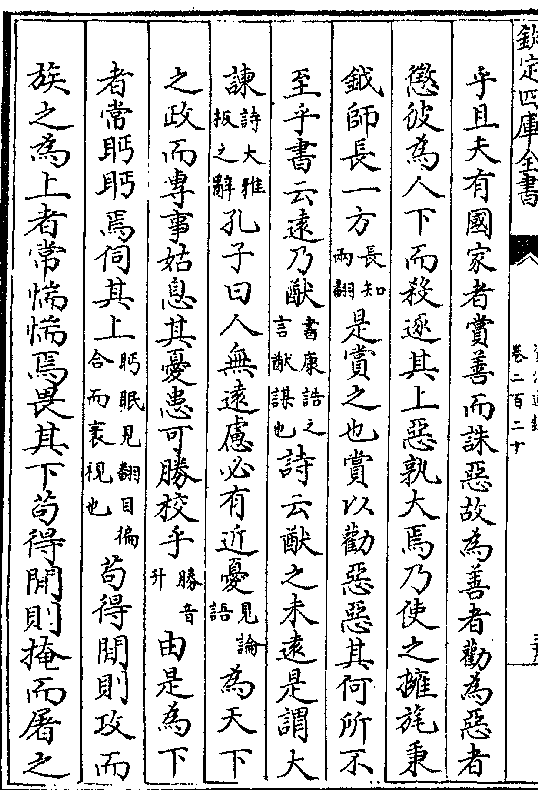 欽定四庫全書
卷二百二十
乎且夫有國家者賞善而誅惡故為善者勸為惡者
懲彼為人下而殺逐其上惡孰大焉乃使之擁旄秉
鉞師長一方長知兩翻是賞之也賞以勸惡惡其何所不
至乎書云遠乃猷書康誥之言猷謀也詩云猷之未遠是謂大
諫詩大雅板之辭孔子曰人無遠慮必有近憂見論語為天下
之政而專事姑息其憂患可勝校乎勝音升由是為下
者常眄眄焉伺其上眄眠見翻目徧合而衺視也苟得間則攻而
族之為上者常惴惴焉畏其下苟得間則掩而屠之